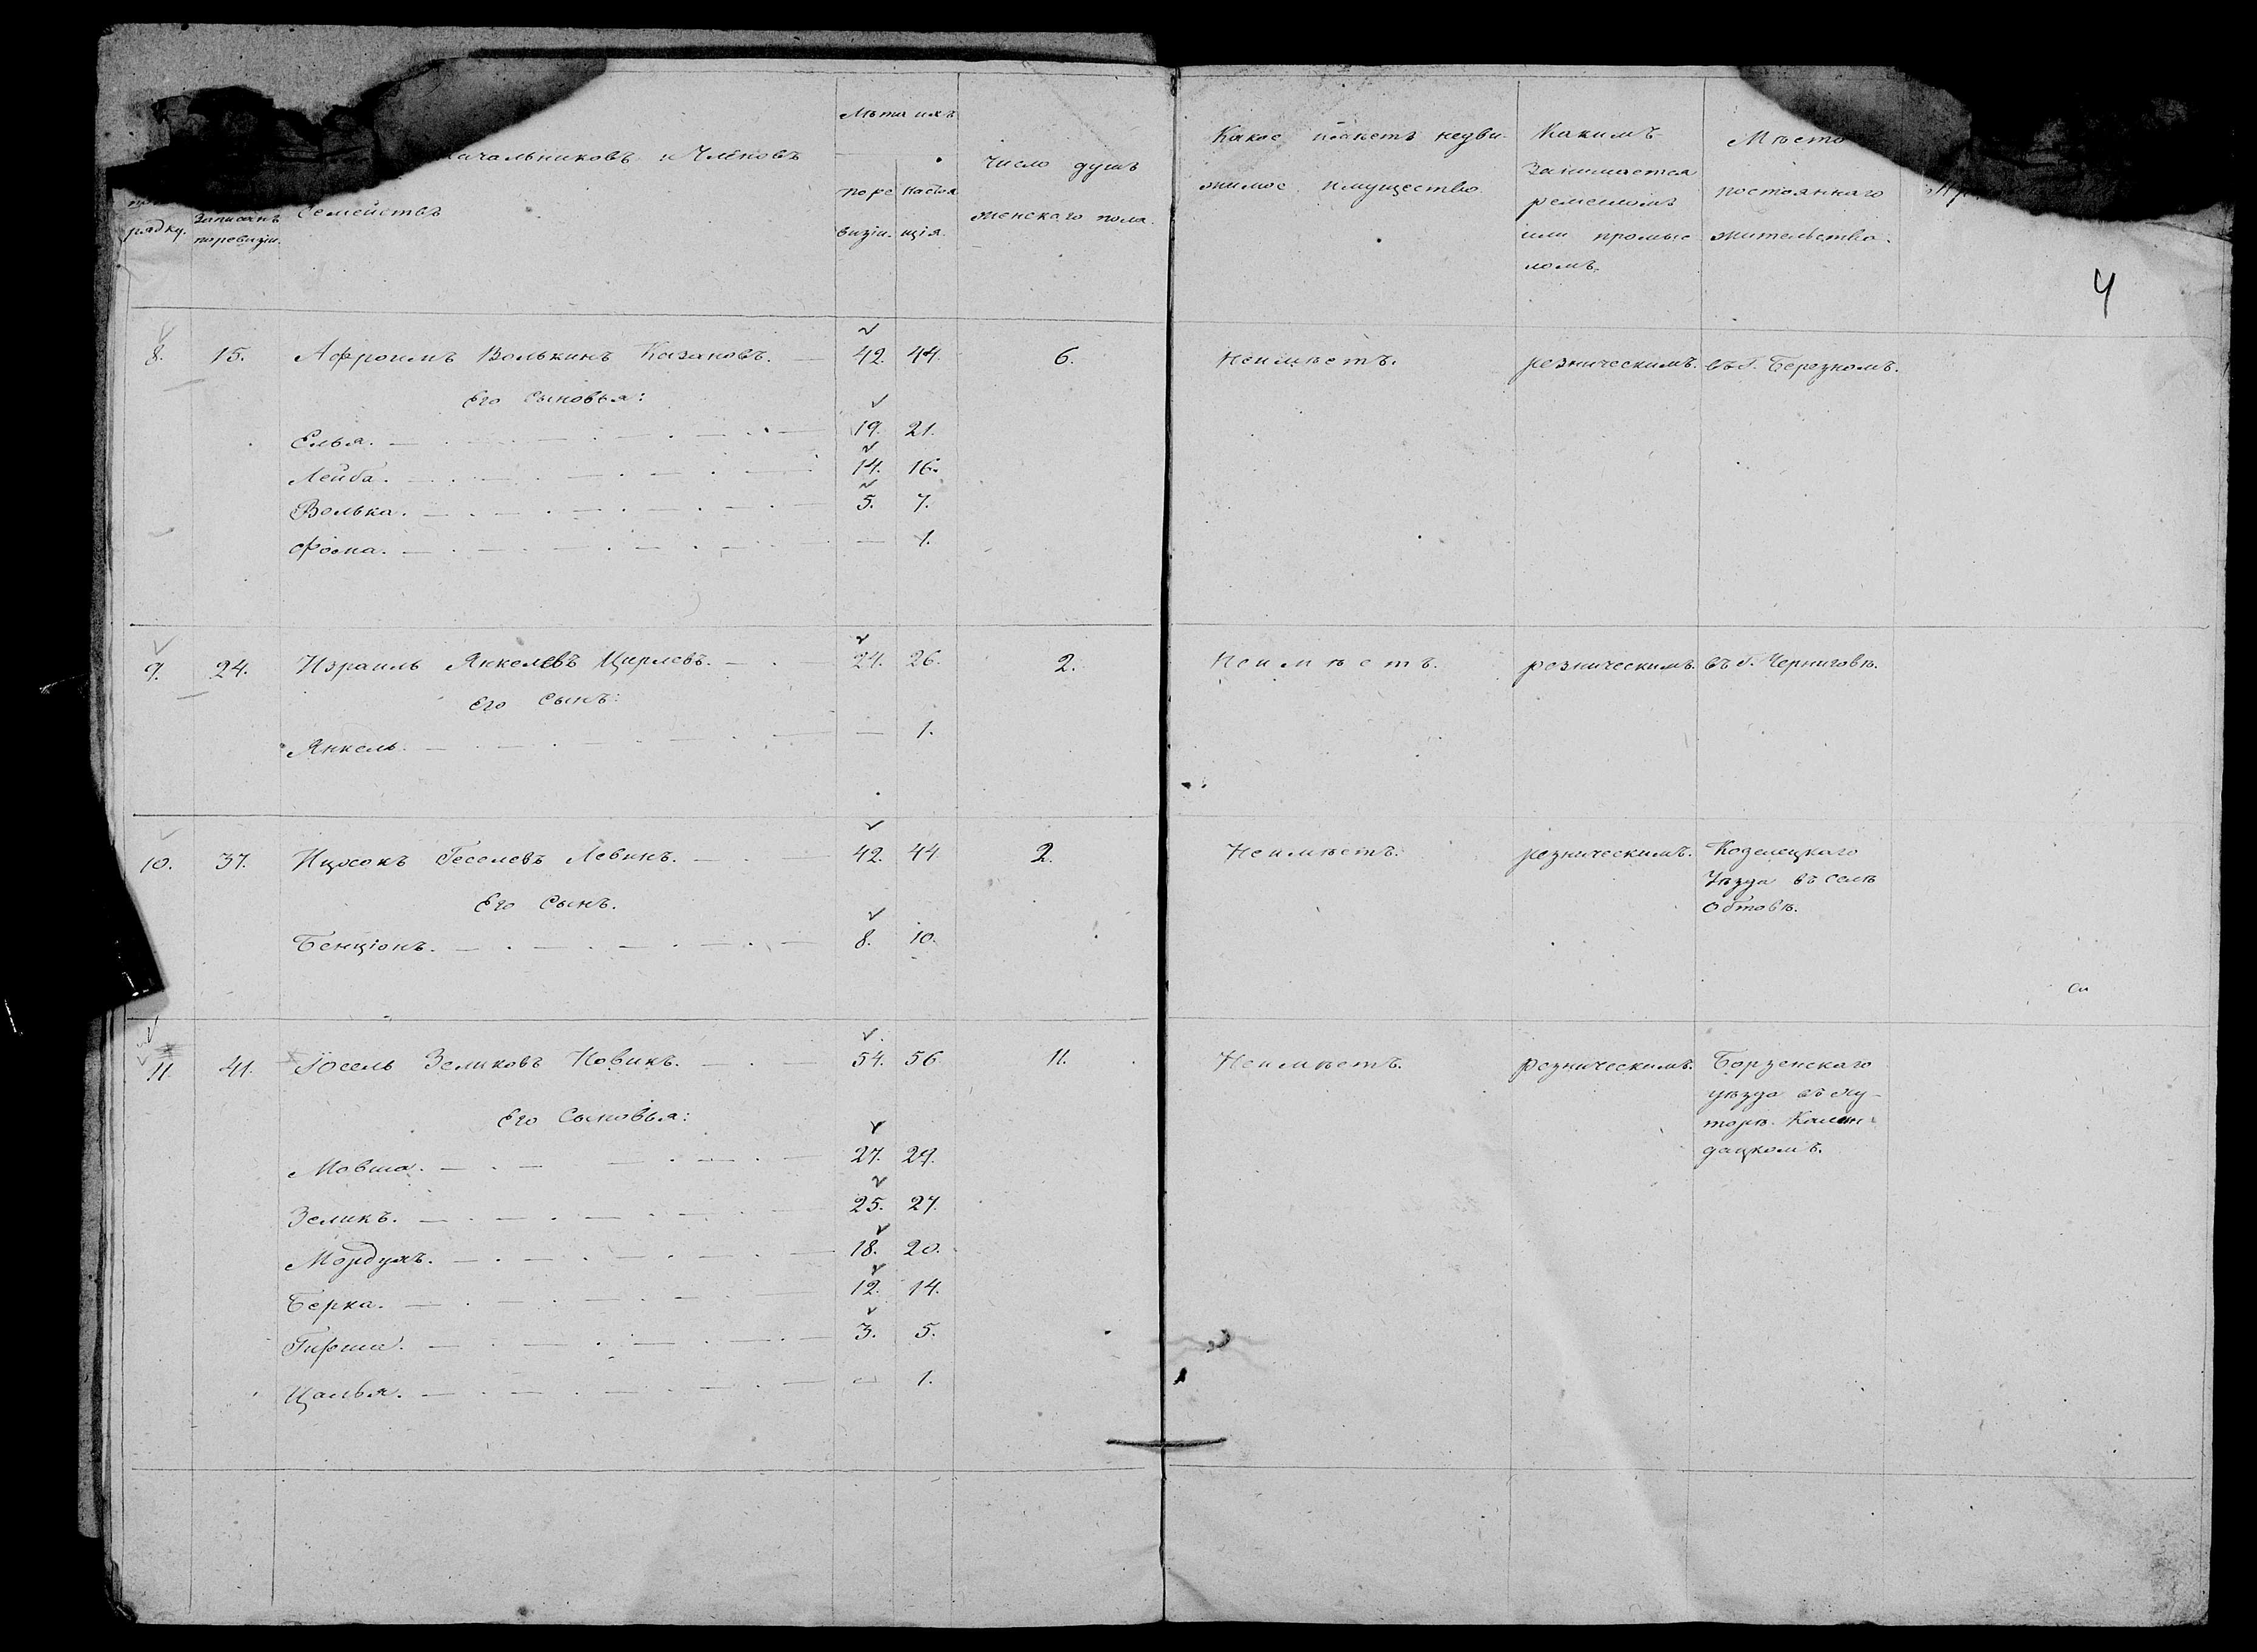 Лѣта ихъ
начальниковъ и Членовъ
семействъ
рядку.
Записанъ
по ревизіи.
по ре
визіи.
настоя
щія.
Число душъ
женскаго пола.
Какое имѣетъ недви-
жимое имущество.
Какимъ
занимается
ремесломъ
или промыс
ломъ.
Мѣсто
постояннаго
жительства.
4
8. 15. Афроимъ Волькинъ Казаковъ. 42. 44. 6. Неимѣетъ. резническимъ. въ г. Березномъ.
Его Сыновья:
Елья. 19. 21.
Лейба. 14. 16.
Волька. 5. 7.
— 1.
9. 24. Израиль Янкелевъ Цирлевъ. 24. 26. 2. Неимѣетъ. резническимъ. въ г. Черниговѣ.
Его Сынъ:
Янкель. — 1.
10. 37. Ицхокъ Геселевъ Левинъ. 42. 44. 2. Неимѣетъ. резническимъ. Козелецкаго
Уѣзда въ селѣ
Обтовѣ.
Его Сынъ.
Бенціонъ. 8. 10.
11. 41. Іосель Зеликовъ Новикъ. 54. 56. 11. Неимѣетъ. резническимъ. Борзенскаго
уѣзда въ Ху-
торѣ
дацкомъ.
Его Сыновья:
Мовша. 27. 29.
Зеликъ. 25. 27.
Мордухъ. 18. 20.
Берка. 12. 14.
Гирша. 3. 5.
Цалья. — 1.